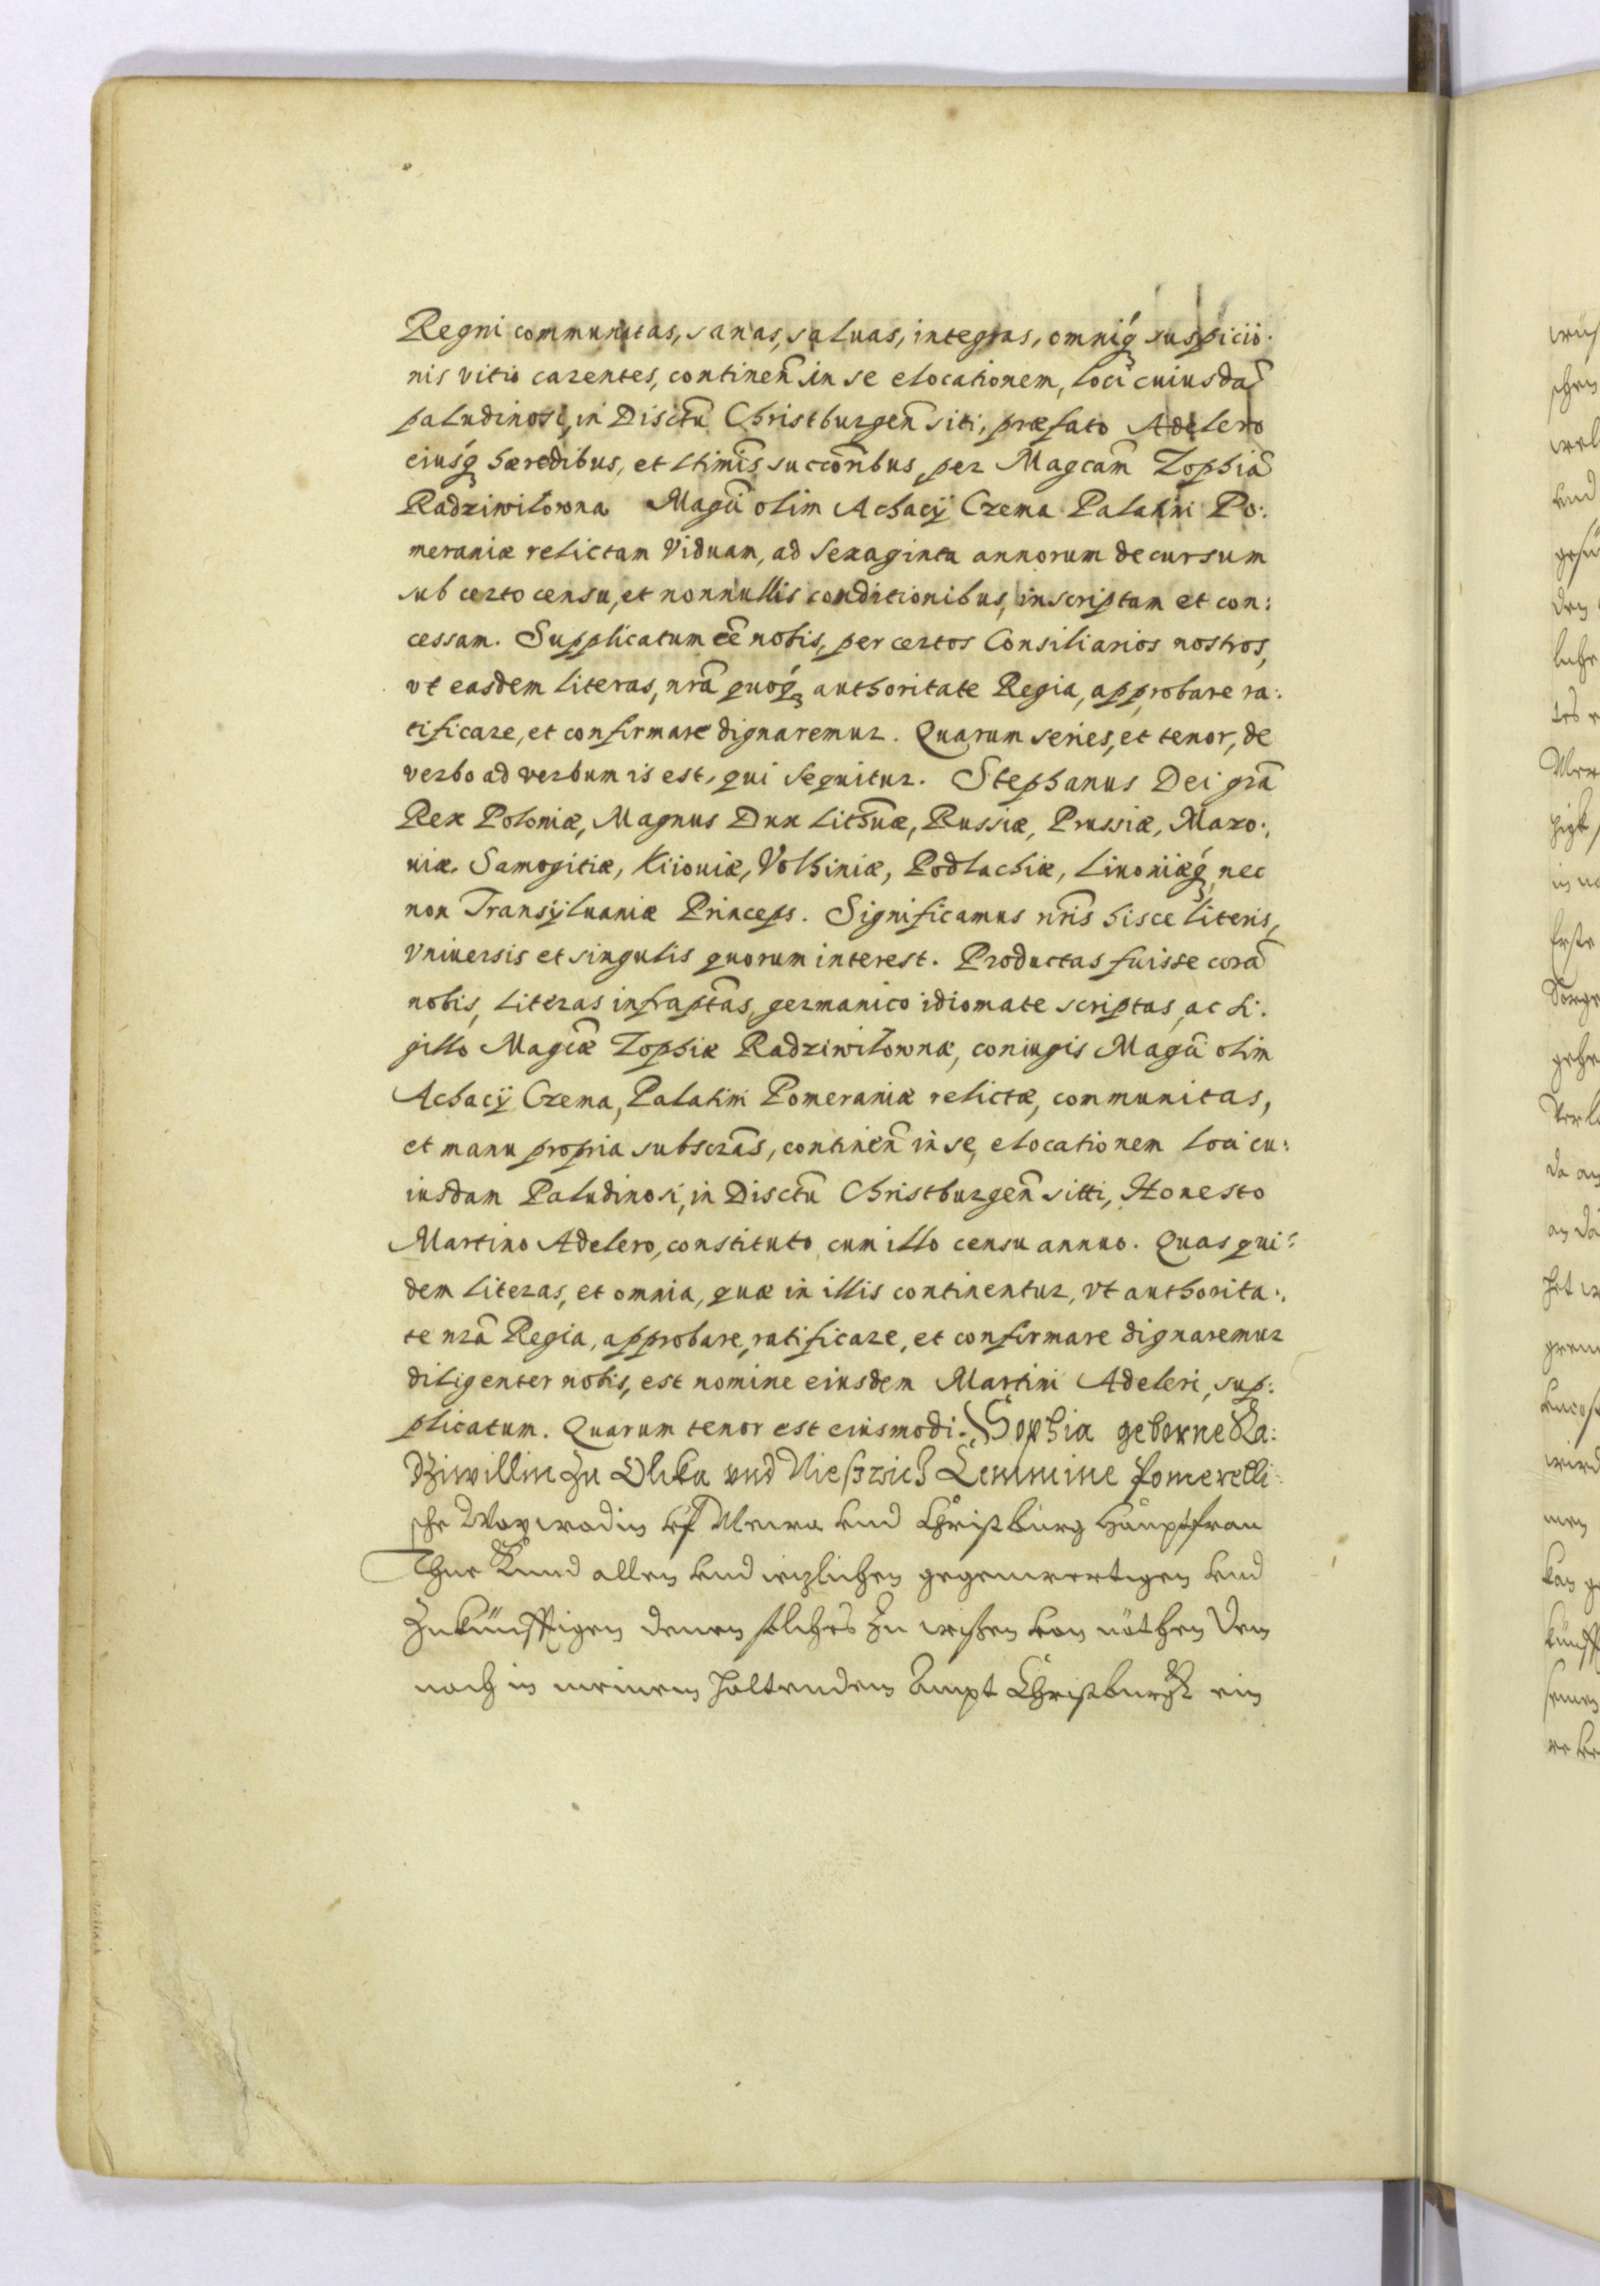 Regni communitas, sanas, saluas, integras, omniq́ꝫ suspicio·
nis vitio carentes, continen̄ in se elocationem, loci cuiusdā
paludinosi, in Disctū Christburgen̄ siti, præfato Adelero
eiusq́ꝫ hæredibus, et Ltimīs succōribus, per Magcam̄ Zophiā
Radziwilowna Magci̅ olim Achacÿ Czema Palatini Po:
meraniæ relictam Viduam, ad Sexaginta annorum decursum
sub certo censu, et nonnullis conditionibus, inscriptam et con:
cessam. Supplicatum ēe nobis, per certos Consiliarios nostros,
vt easdem literas, nrā quoq́ꝫ authoritate Regia, approbare ra:
tificare, et confirmare dignaremur. Quarum series, et tenor, de
verbo ad verbum is est, qui sequitur. Stephanus Dei grā
Rex Poloniæ, Magnus Dux Lithuǣ, Russiæ, Prussiæ, Mazo:
uiæ. Samogitiæ, Kiiouiæ, Volhiniæ, Podlachiæ, Liuoniæq́ꝫ, nec
non Transÿluaniæ Princeps. Significamus nr̄is hisce literis,
Vniuersis et singulis quorum interest. Productas fuisse corā
nobis, literas infraptās, germanico idiomate scriptas, ac si·
gillo Magcǣ Zophiæ Radziwilownæ, coniugis Magci̅ olim
Achacÿ Czema, Palatini Pomeraniæ relictæ, communitas,
et manu propria subscrās, continēn in se, elocationem loci cu:
iusdam Paludinosi, in Disctū Christburgen̄ sitti, Honesto
Martino Adelero, constituto cum illo censu annuo. Quas qui:
dem literas, et omnia, quæ in illis continentur, vt authorita:
te nrā Regia, approbare, ratificare, et confirmare dignaremur
diligenter nobis, est nomine eiusdem Martini Adeleri, sup:
plicatum. Quarum tenor est eiusmodi. Sophia geborne Ra:
dziwillin zu Olika vnd Nießwich Zemmine Pomerelli:
sche Woywodin vf Mewa vnd Christburg Hauptfrau
Thue Kund allen vnd ietzlichen gegenwertigen vnd
Zukünfftigen denen solches zu wißen von nöthen Dem
nach in meinem haltendem Ampt Christburgk ein